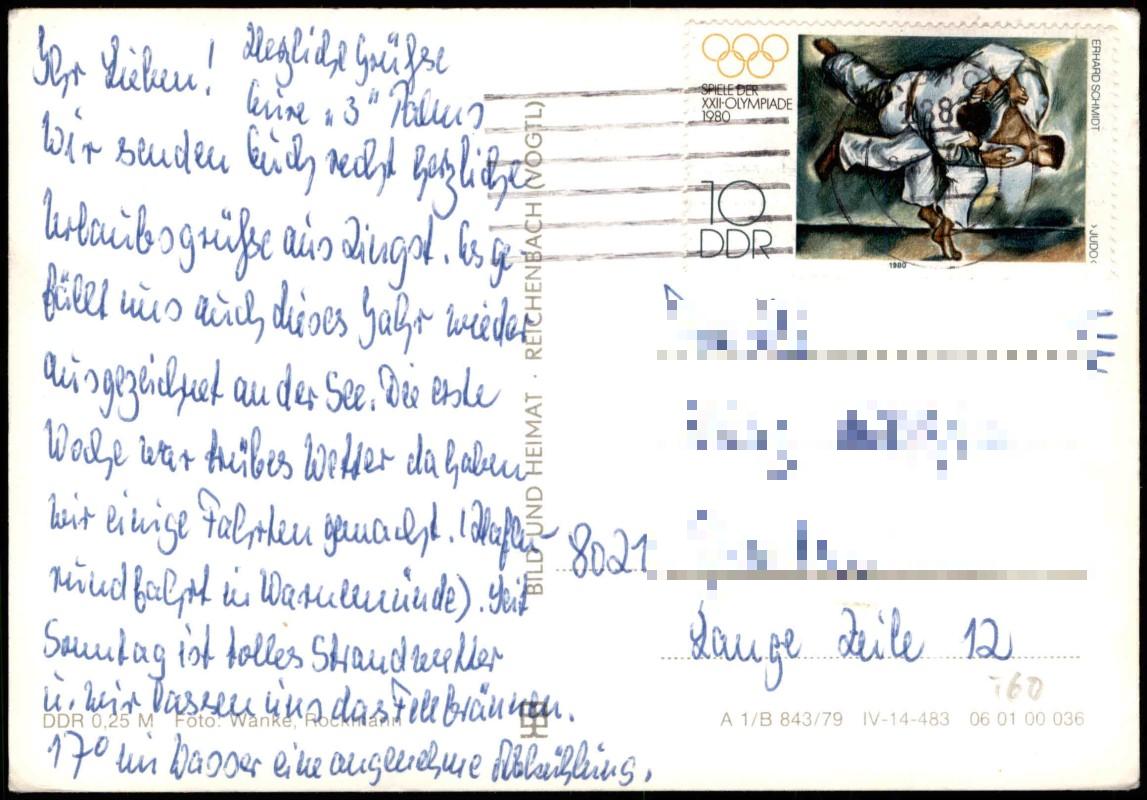 Ihr Lieben!
Herzliche Grüße
Eure "3" Palms
Wir senden Euch recht herzliche
Urlaubsgrüße aus Zingst. Es ge-
fällt uns auch dieses Jahr wieder
ausgezeichnet an der See. Die erste
Woche war trübes Wetter da haben
wir einige Fahrten gemacht. (Hafen-
rundfahrt in Warnemünde). Seit
Sonntag ist tolles Strandwetter
u. wir lassen uns das Fell bräunen.
17° im Wasser eine angenehme Abkühlung.
DDR 0,25 M Foto: Wanke, Rockmann
BILD UND HEIMAT · REICHENBACH (VOGTL)
SPIELE DER
XXII·OLYMPIADE
1980
10
DDR
ERHARD SCHMIDT
›JUDO‹
1980
8021
Lange Zeile 12
160
A 1/B 843/79 IV-14-483 06 01 00 036